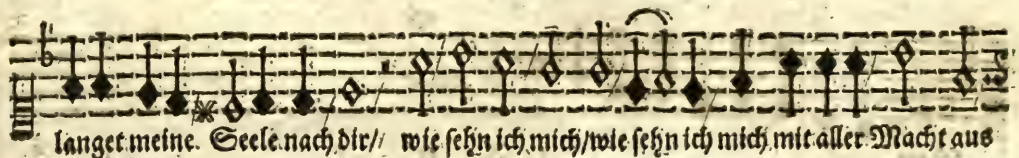 langet meine. Seele nach dir// wie sehn ich mich/wie sehn ich mich mit aller Macht aus